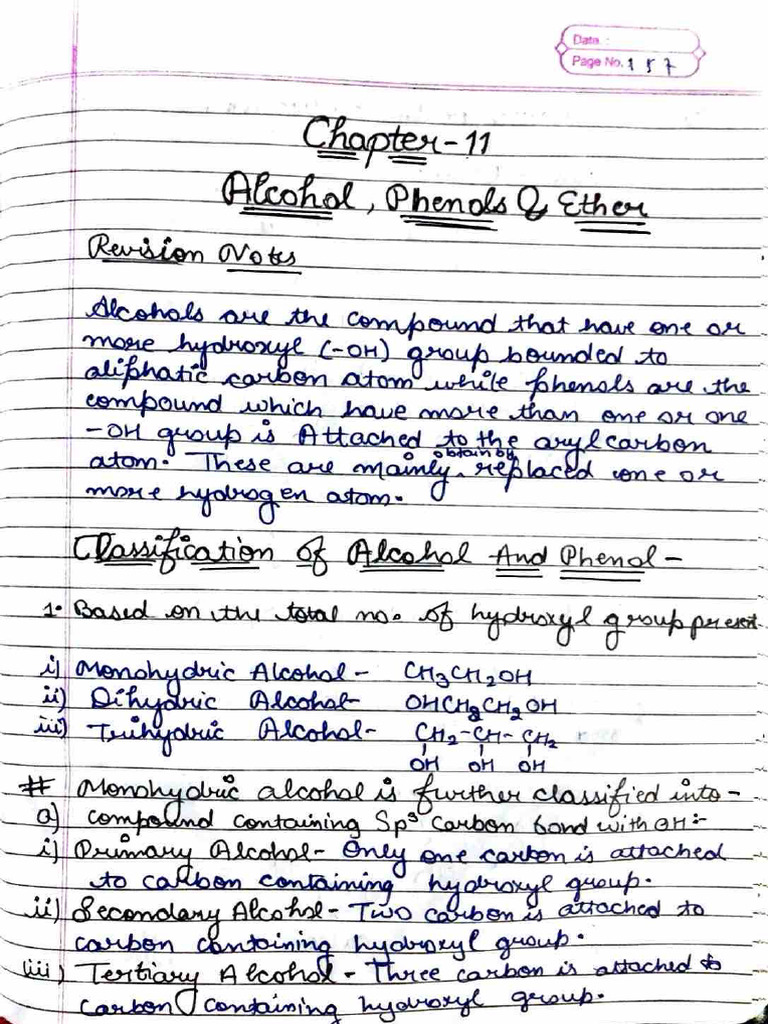 Date :
Page No. 157
Chapter-11
Alcohol, Phenols & Ether
Revision Notes
Alcohols are the compound that have one or
more hydroxyl (-OH) group bounded to
aliphatic carbon atom while phenols are the
compound which have more than one or one
-OH group is Attached to the aryl carbon
atom. These are mainly obtain by replaced one or
more hydrogen atom.
Classification of Alcohol And Phenol-
1. Based on the total no. of hydroxyl group present.
i) Monohydric Alcohol- CH3CH2OH
ii) Dihydric Alcohol- OHCH2CH2OH
iii) Trihydric Alcohol- CH2-CH-CH2
OH OH OH
# Monohydric alcohol is further classified into-
a) compound containing Sp3 Carbon bond with OH:-
i) Primary Alcohol- Only one carbon is attached
to carbon containing hydroxyl group.
ii) Secondary Alcohol- Two carbon is attached to
carbon containing hydroxyl group.
(iii) Tertiary Alcohol- Three carbon is attached to
carbon containing hydroxyl group.